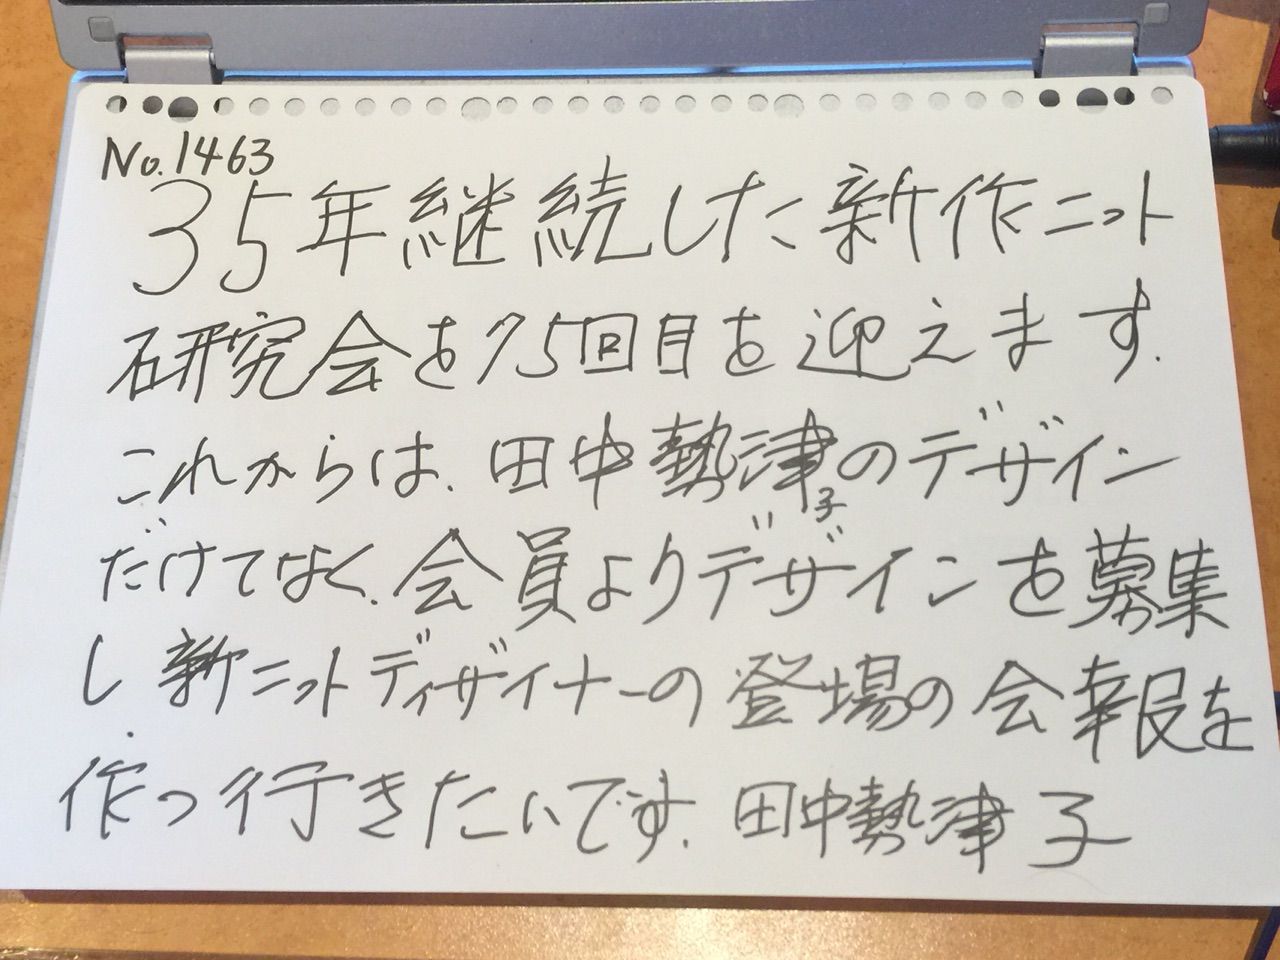 No.1463
35年継続した新作ニット
研究会を75回目を迎えます.
これからは、田中勢津子のデザイン
だけでなく、会員よりデザインを募集
し、新ニットディザイナーの登場の会報を
作っ行きたいです. 田中勢津子